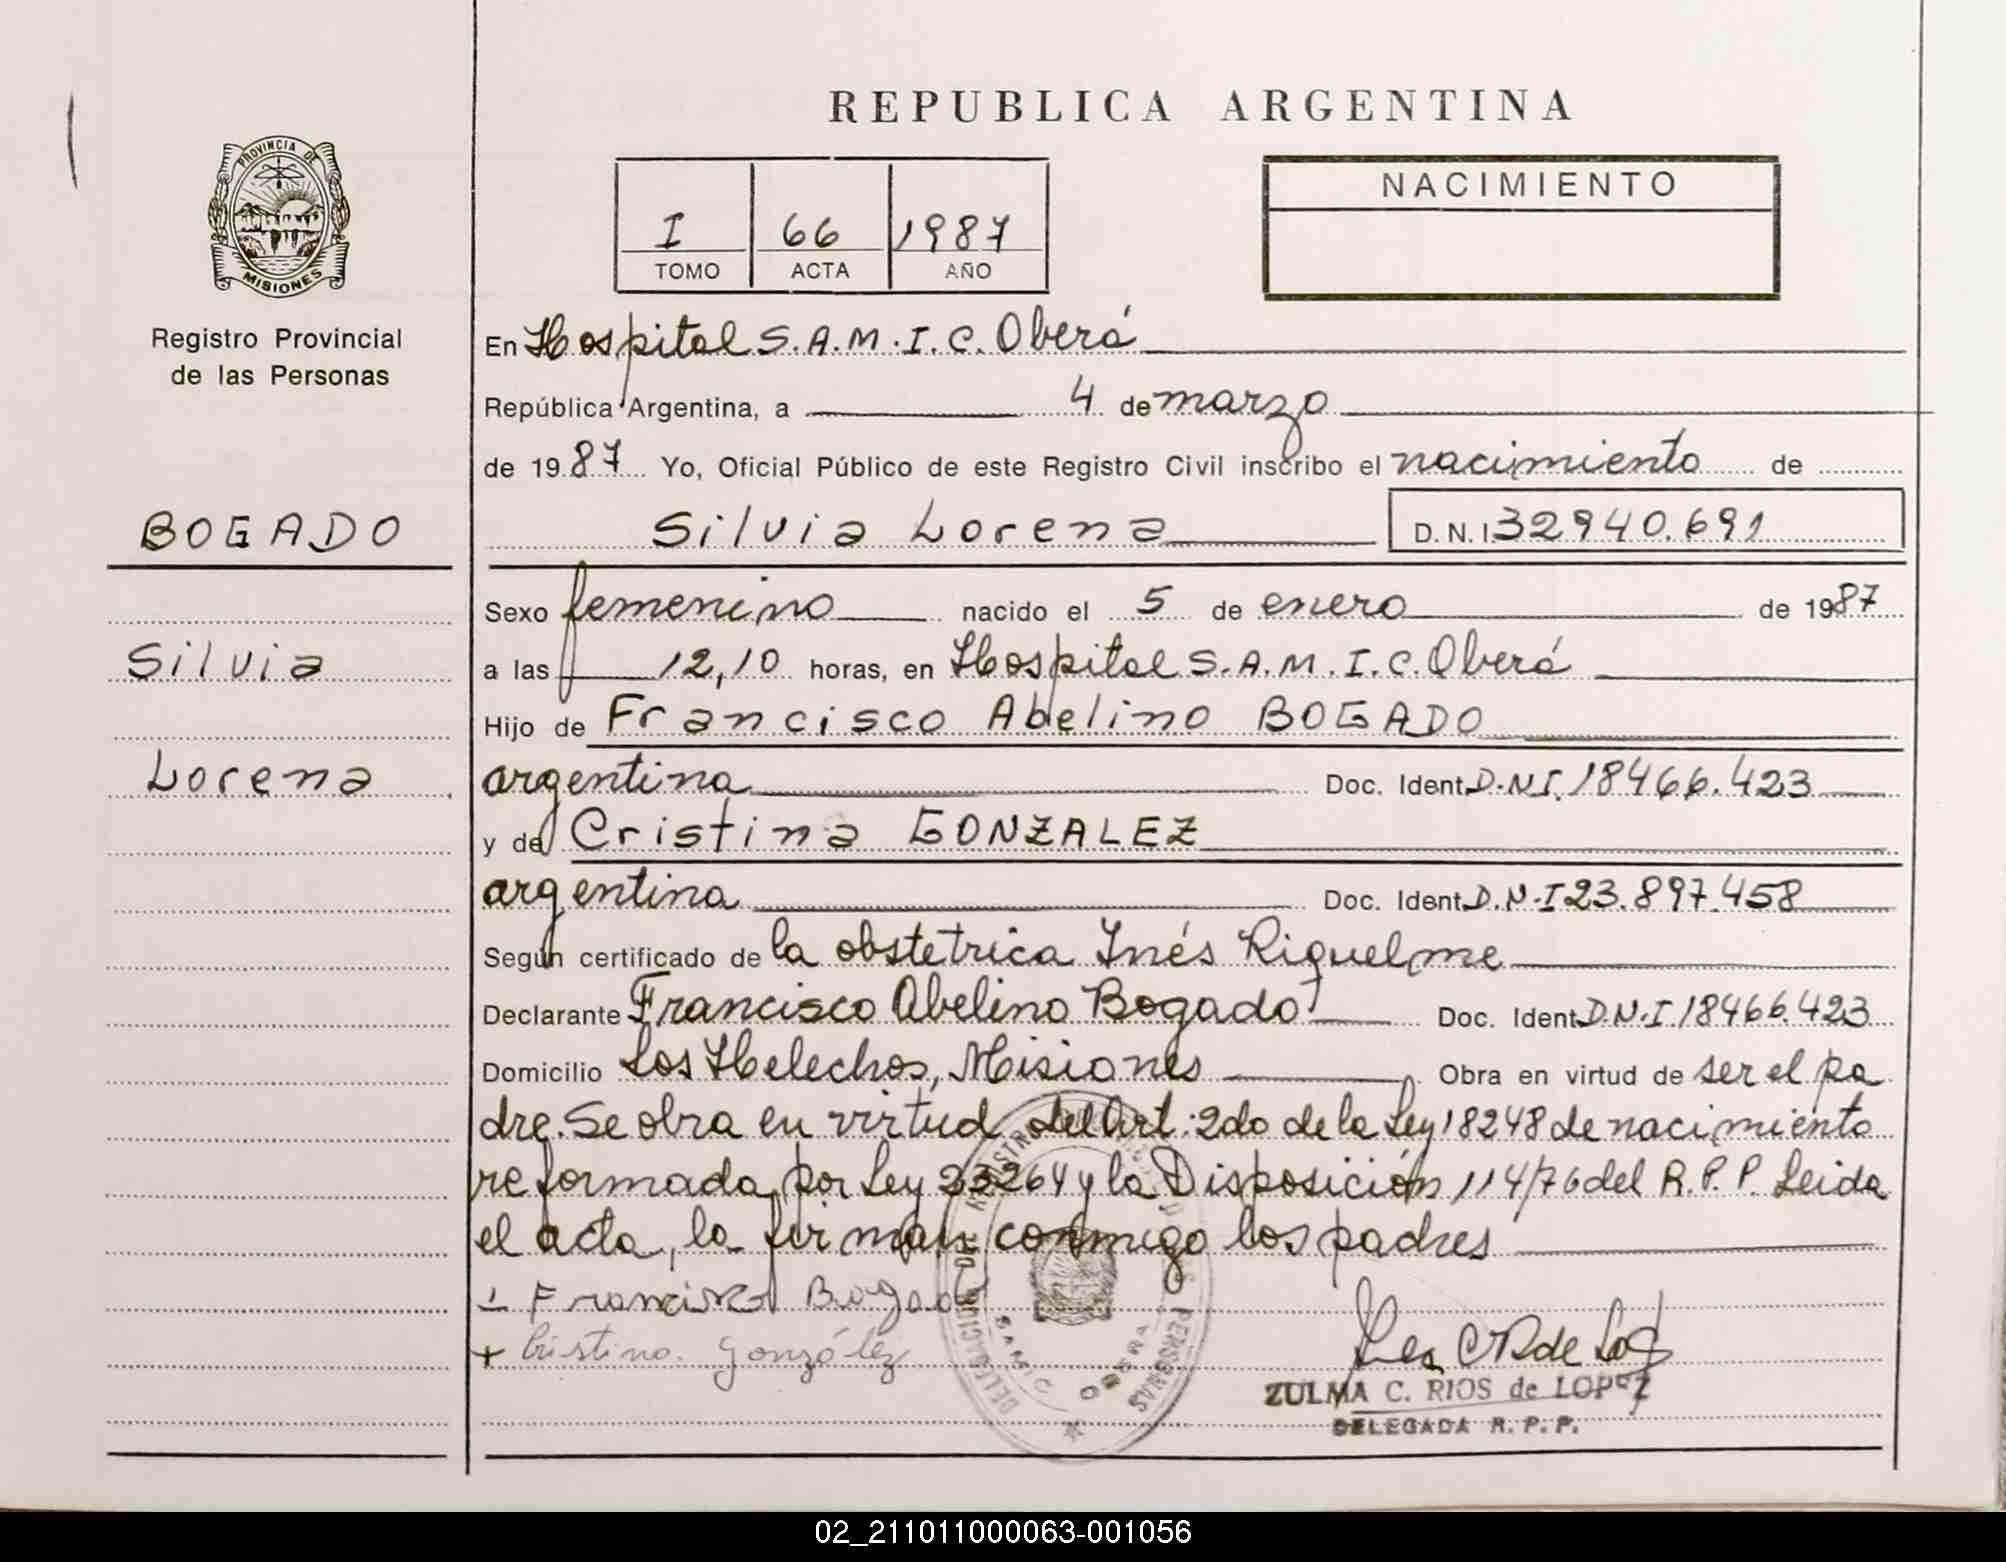 REPUBLICA ARGENTINA
PROVINCIA DE
MISIONES
Registro Provincial
de las Personas
BOGADO
Silvia
Lorena
I 66 1987
TOMO ACTA AÑO
NACIMIENTO
En Hospital S.A.M.I.C. Oberá
República Argentina, a 4 de marzo
de 1987 Yo, Oficial Público de este Registro Civil inscribo el nacimiento de
Silvia Lorena D.N.I 32940.691
Sexo femenino nacido el 5 de enero de 1987
a las 12,10 horas, en Hospital S.A.M.I.C. Oberá
Hijo de Francisco Abelino BOGADO
argentina Doc. Ident D.N.I. 18466.423
y de Cristina GONZALEZ
argentina Doc. Ident D.N.I 23.897.458
Según certificado de la obstetrica Inés Riquelme
Declarante Francisco Abelino Bogado Doc. Ident D.N.I. 18466.423
Domicilio Los Helechos, Misiones Obra en virtud de ser el pa
dre. Se obra en virtud del Art. 2do de la Ley 18248 de nacimiento
reformada por Ley 23264 y la Disposición 114/76 del R.P.P. Leida
el acta, la firman conmigo los padres
Francisco Bogado
+ Cristina González
ZULMA C. RIOS de LOPEZ
DELEGADA R.P.P.
02_211011000063-001056